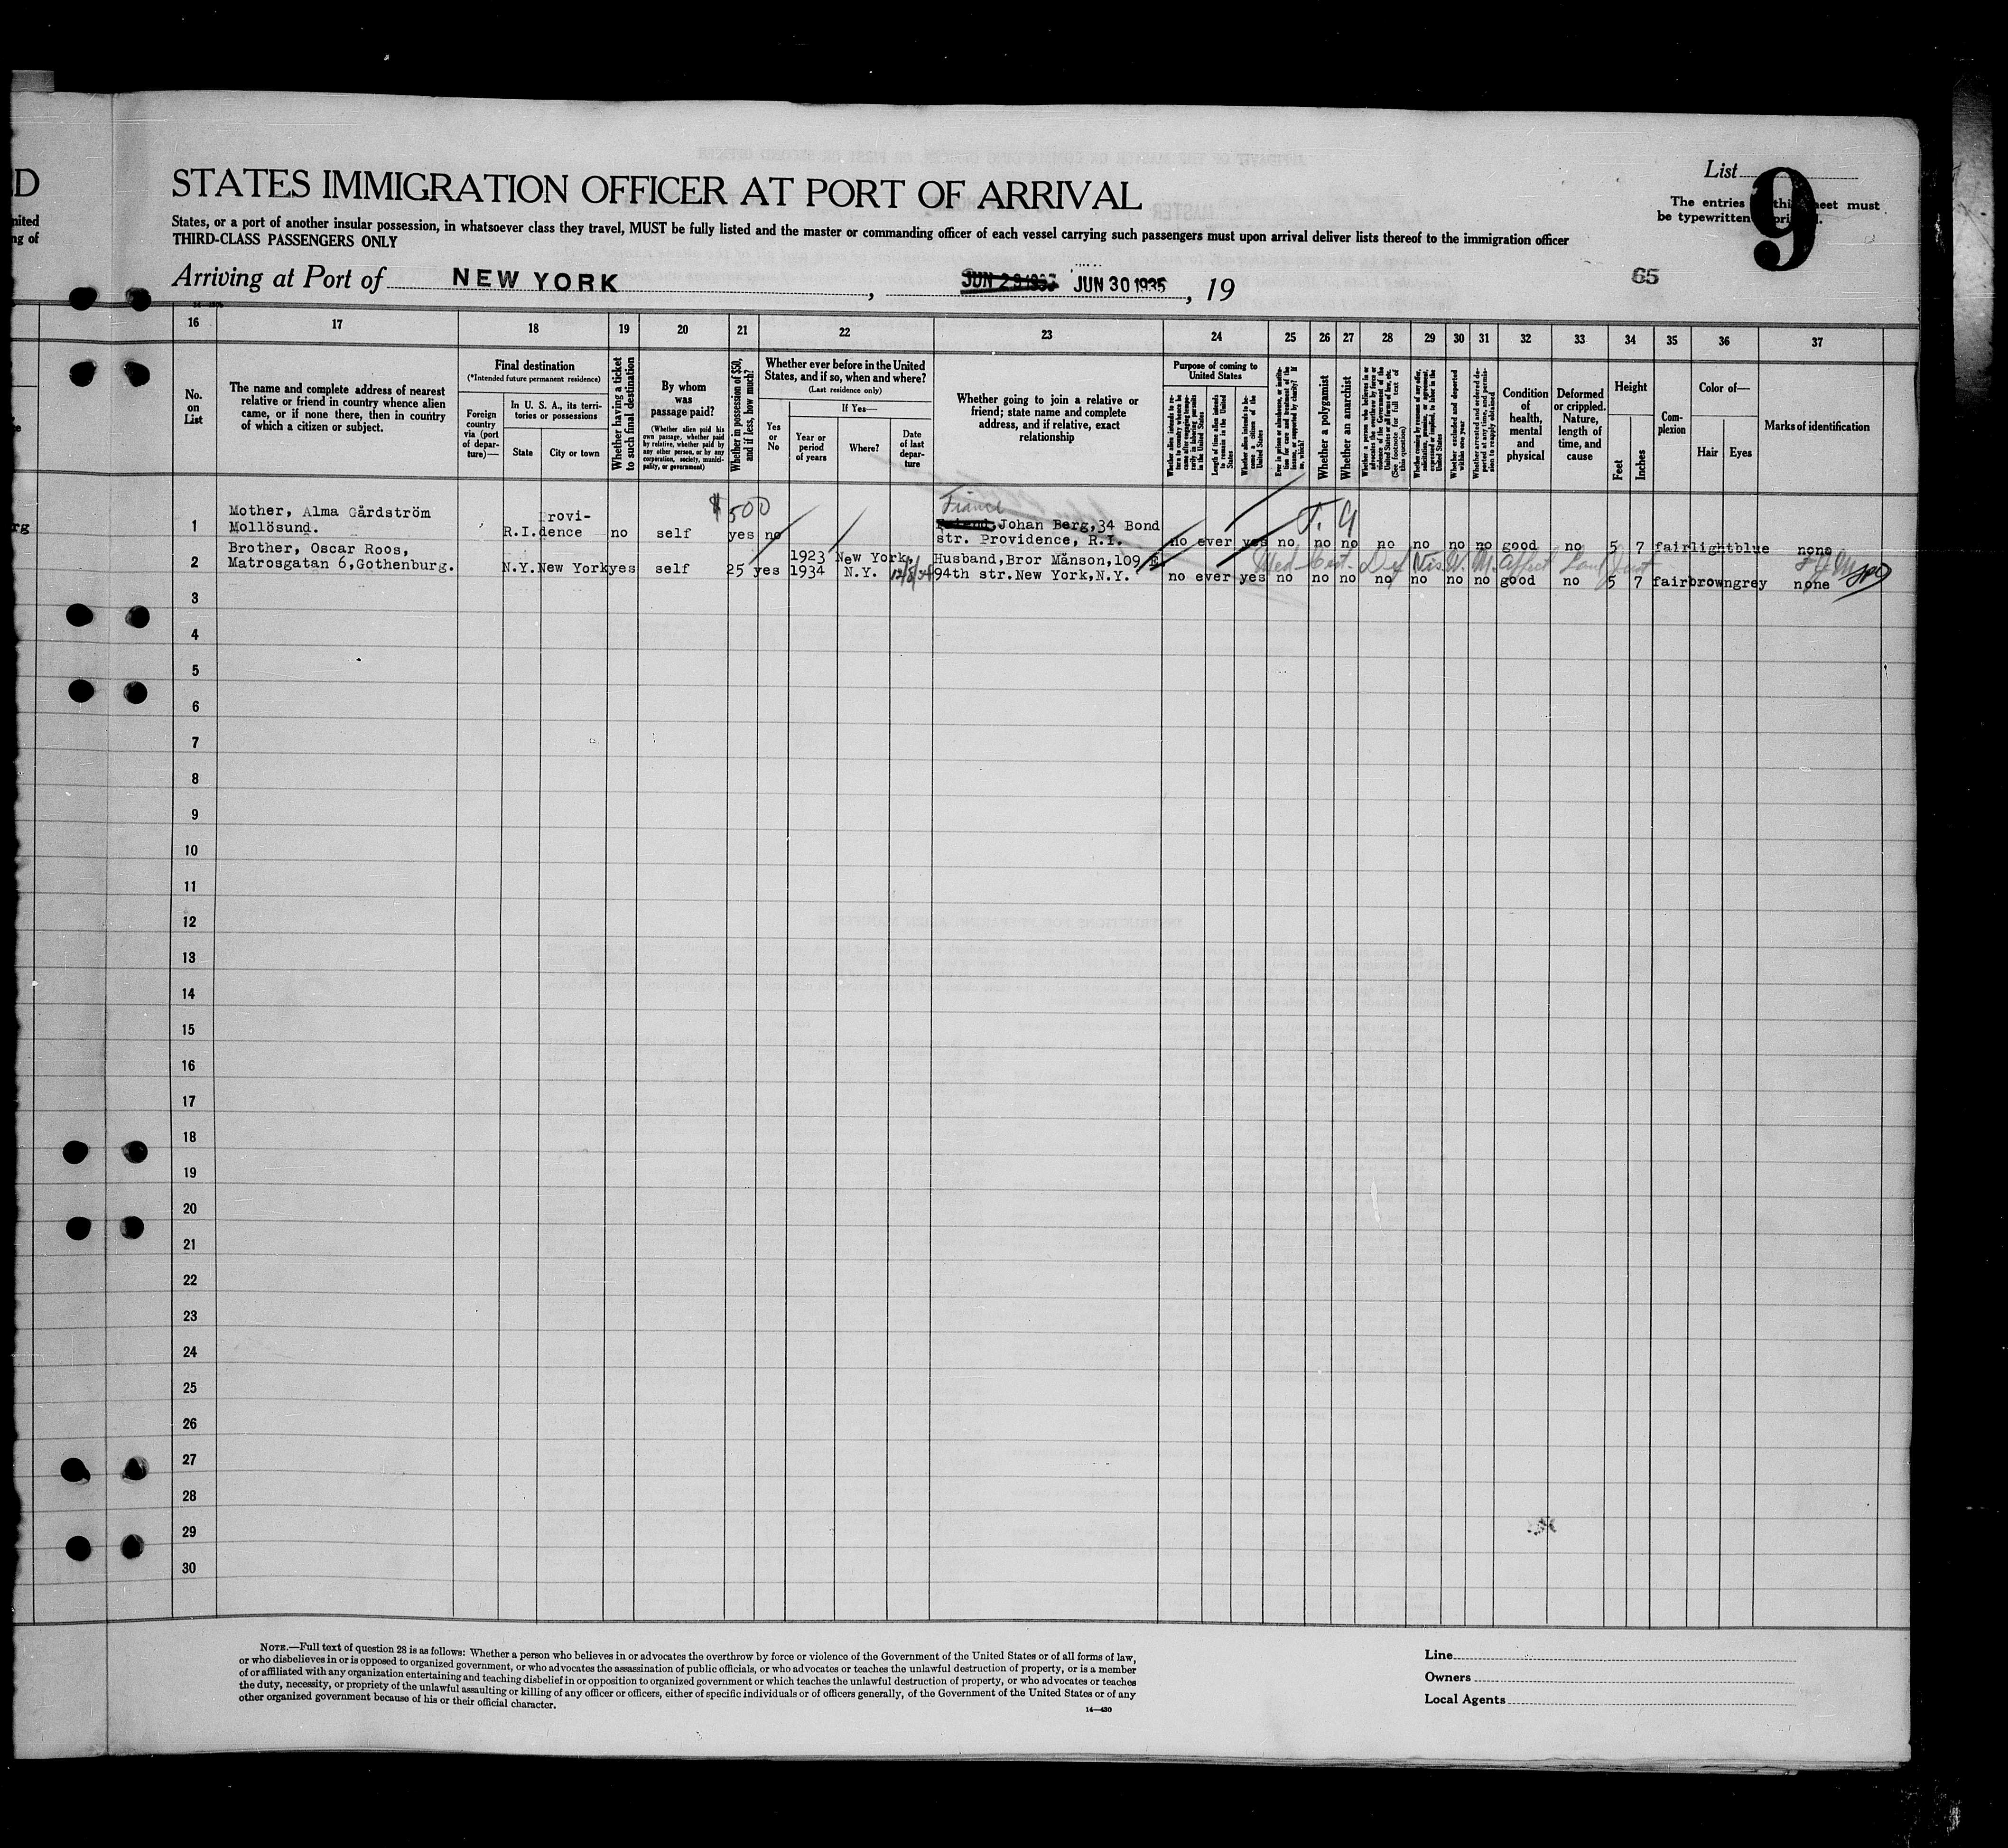 D
STATES IMMIGRATION OFFICER AT PORT OF ARRIVAL
List
9
The entries this sheet must
be typewritten or printed.
nited
ng of
States, or a port of another insular possession, in whatsoever class they travel, MUST be fully listed and the master or commanding officer of each vessel carrying such passengers must upon arrival deliver lists thereof to the immigration officer
THIRD-CLASS PASSENGERS ONLY
Arriving at Port of NEW YORK, JUN 30 1935, 19
65
16 17 18 19 20 21 22 23 24 25 26 27 28 29 30 31 32 33 34 35 36 37
No. on List
The name and complete address of nearest relative or friend in country whence alien came, or if none there, then in country of which a citizen or subject.
Final destination
(*Intended future permanent residence)
Foreign country via (port of departure)—
In U. S. A., its territories or possessions
State
City or town
Whether having a ticket to such final destination
By whom was passage paid?
(Whether alien paid his own passage, whether paid by relative, whether paid by any other person, or by any corporation, society, municipality, or government)
Whether in possession of $50, and if less, how much?
Whether ever before in the United States, and if so, when and where?
(Last residence only)
Yes or No
If Yes—
Year or period of years
Where?
Date of last departure
Whether going to join a relative or friend; state name and complete address, and if relative, exact relationship
Purpose of coming to United States
Whether alien intends to return to country whence he came after engaging temporarily in laboring pursuits in the United States
Length of time alien intends to remain in the United States
Whether alien intends to become a citizen of the United States
Ever in prison or almshouse, or institution for care and treatment of the insane, or supported by charity? If so, which?
Whether a polygamist
Whether an anarchist
Whether a person who believes in or advocates the overthrow by force or violence of the Government of the United States or all forms of law, etc. (See footnote for full text of this question)
Whether coming by reason of any offer, solicitation, promise, or agreement, expressed or implied, to labor in the United States
Whether excluded and deported within one year
Whether arrested and ordered deported at any time, and permission to reapply obtained
Condition of health, mental and physical
Deformed or crippled. Nature, length of time, and cause
Height
Feet
Inches
Complexion
Color of—
Hair
Eyes
Marks of identification
rg
$ 500
Fiancé
T. 9
1 Mother, Alma Gårdström Mollösund. R.I. Providence no self yes no Johan Berg, 34 Bond str. Providence, R.I. no ever yes no no no no no no no good no 5 7 fair light blue none
Med. Cert. Def. Vis.
2 Brother, Oscar Roos, Matrosgatan 6, Gothenburg. N.Y. New York yes self 25 yes 1923 1934 New York, N.Y. 12/8/34 Husband, Bror Månson, 109 E. 94th str. New York, N.Y. no ever yes no no no no no no no good no 5 7 fair brown grey none
3
4
5
6
7
8
9
10
11
12
13
14
15
16
17
18
19
20
21
22
23
24
25
26
27
28
29
30
NOTE.—Full text of question 28 is as follows: Whether a person who believes in or advocates the overthrow by force or violence of the Government of the United States or of all forms of law,
or who disbelieves in or is opposed to organized government, or who advocates the assassination of public officials, or who advocates or teaches the unlawful destruction of property, or is a member
of or affiliated with any organization entertaining and teaching disbelief in or opposition to organized government or which teaches the unlawful destruction of property, or who advocates or teaches
the duty, necessity, or propriety of the unlawful assaulting or killing of any officer or officers, either of specific individuals or of officers generally, of the Government of the United States or of any
other organized government because of his or their official character.
14—430
Line
Owners
Local Agents